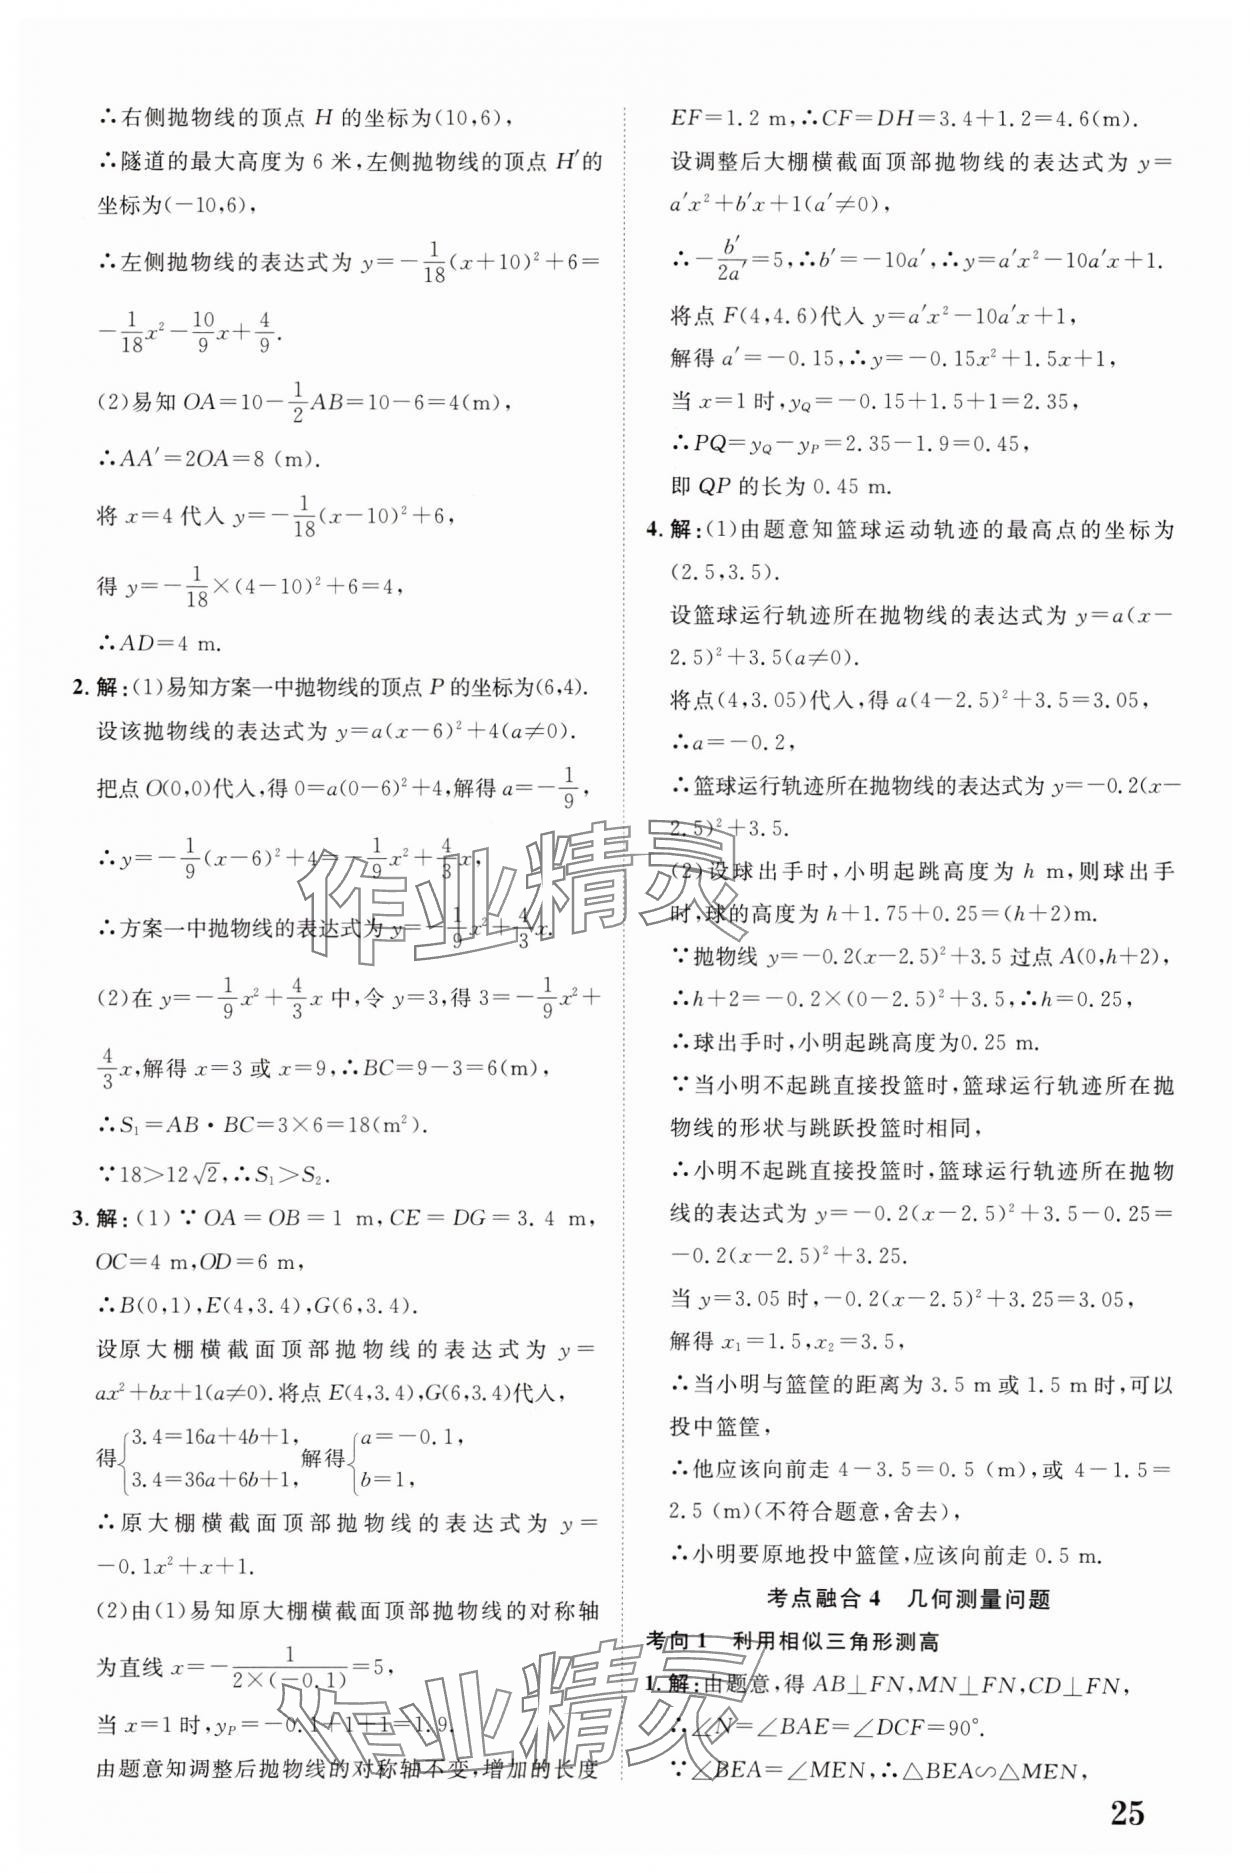 ∴右侧抛物线的顶点 H 的坐标为(10,6),
∴隧道的最大高度为 6 米,左侧抛物线的顶点 H′的
坐标为(−10,6),
∴左侧抛物线的表达式为 y=−1/18(x+10)²+6=
−1/18x²−10/9x+4/9.
(2)易知 OA=10−1/2AB=10−6=4(m),
∴AA′=2OA=8 (m).
将 x=4代入 y=−1/18(x−10)²+6,
得 y=−1/18×(4−10)²+6=4,
∴AD=4 m.
2. 解:(1)易知方案一中抛物线的顶点 P 的坐标为(6,4).
设该抛物线的表达式为 y=a(x−6)²+4(a≠0).
把点 O(0,0)代入,得 0=a(0−6)²+4,解得 a=−1/9,
∴y=−1/9(x−6)²+4=−1/9x²+4/3x,
∴方案一中抛物线的表达式为 y=−1/9x²+4/3x.
(2)在 y=−1/9x²+4/3x 中,令 y=3,得 3=−1/9x²+
4/3x,解得 x=3 或 x=9,∴BC=9−3=6(m),
∴S₁=AB·BC=3×6=18(m²).
∵18>12√2,∴S₁>S₂.
3. 解:(1)∵OA=OB=1 m,CE=DG=3.4 m,
OC=4 m,OD=6 m,
∴B(0,1),E(4,3.4),G(6,3.4).
设原大棚横截面顶部抛物线的表达式为 y=
ax²+bx+1(a≠0).将点 E(4,3.4),G(6,3.4)代入,
得{3.4=16a+4b+1, 3.4=36a+6b+1, 解得{a=−0.1, b=1,
∴原大棚横截面顶部抛物线的表达式为 y=
−0.1x²+x+1.
(2)由(1)易知原大棚横截面顶部抛物线的对称轴
为直线 x=−1/(2×(−0.1))=5,
当 x=1时,y_P=−0.1+1+1=1.9.
由题意知调整后抛物线的对称轴不变,增加的长度
EF=1.2 m,∴CF=DH=3.4+1.2=4.6(m).
设调整后大棚横截面顶部抛物线的表达式为 y=
a′x²+b′x+1(a′≠0),
∴−b′/2a′=5,∴b′=−10a′,∴y=a′x²−10a′x+1.
将点 F(4,4.6)代入 y=a′x²−10a′x+1,
解得 a′=−0.15,∴y=−0.15x²+1.5x+1,
当 x=1时,y_Q=−0.15+1.5+1=2.35,
∴PQ=y_Q−y_P=2.35−1.9=0.45,
即 QP 的长为 0.45 m.
4. 解:(1)由题意知篮球运动轨迹的最高点的坐标为
(2.5,3.5).
设篮球运行轨迹所在抛物线的表达式为 y=a(x−
2.5)²+3.5(a≠0).
将点(4,3.05)代入,得 a(4−2.5)²+3.5=3.05,
∴a=−0.2,
∴篮球运行轨迹所在抛物线的表达式为 y=−0.2(x−
2.5)²+3.5.
(2)设球出手时,小明起跳高度为 h m,则球出手
时,球的高度为 h+1.75+0.25=(h+2)m.
∵抛物线 y=−0.2(x−2.5)²+3.5 过点 A(0,h+2),
∴h+2=−0.2×(0−2.5)²+3.5,∴h=0.25,
∴球出手时,小明起跳高度为0.25 m.
∵当小明不起跳直接投篮时,篮球运行轨迹所在抛
物线的形状与跳跃投篮时相同,
∴小明不起跳直接投篮时,篮球运行轨迹所在抛物
线的表达式为 y=−0.2(x−2.5)²+3.5−0.25=
−0.2(x−2.5)²+3.25.
当 y=3.05 时,−0.2(x−2.5)²+3.25=3.05,
解得 x₁=1.5,x₂=3.5,
∴当小明与篮筐的距离为 3.5 m或 1.5 m时,可以
投中篮筐,
∴他应该向前走 4−3.5=0.5 (m),或 4−1.5=
2.5 (m)(不符合题意,舍去),
∴小明要原地投中篮筐,应该向前走 0.5 m.
考点融合 4 几何测量问题
考向 1 利用相似三角形测高
1. 解:由题意,得 AB⊥FN,MN⊥FN,CD⊥FN,
∴∠N=∠BAE=∠DCF=90°.
∵∠BEA=∠MEN,∴△BEA∽△MEN,
25
作业精灵
作业精灵